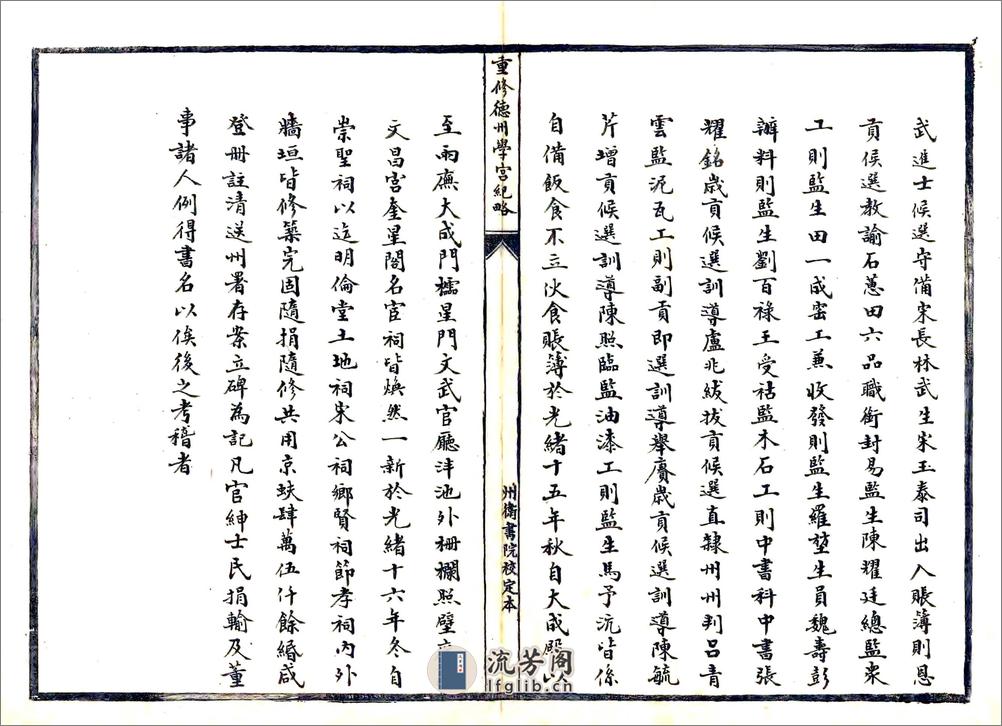 武進士候選守備宋長林武生宋玉泰司出入賬簿則恩
貢候選教諭石蔥田六品職銜封易監生陳耀廷總監衆
工則監生田一成窰工兼收發則監生羅堃生員魏壽彭
辦料則監生劉百祿王受祜監木石工則中書科中書張
耀銘歲貢候選訓導盧兆紱拔貢候選直隸州州判呂青
雲監泥瓦工則副貢即選訓導舉賡歲貢候選訓導陳毓
芹增貢候選訓導陳照臨監油漆工則監生馬予沆皆係
自備飯食不立伙食賬簿於光緒十五年秋自大成殿以
重修德州學宮紀略
州衛書院校定本
至兩廡大成門櫺星門文武官廳泮池外柵欄照壁
文昌宮奎星閣名宦祠皆煥然一新於光緒十六年冬自
崇聖祠以迄明倫堂土地祠宋公祠鄉賢祠節孝祠內外
牆垣皆修築完固隨捐隨修共用京蚨肆萬伍仟餘緡咸
登册註清送州署存案立碑為記凡官紳士民捐輸及董
事諸人例得書名以俟後之考稽者
流芳閣
lfglib.cn